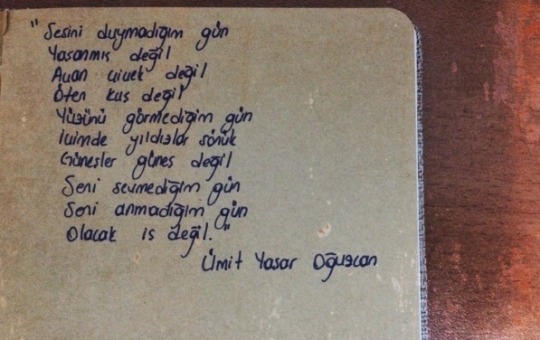 "Sesini duymadığım gün
Yaşanmış değil
Açan çiçek değil
Öten kuş değil
Yüzünü görmediğim gün
İçimde yıldızlar sönük
Güneşler güneş değil
Seni sevmediğim gün
Seni anmadığım gün
Olacak iş değil."
Ümit Yaşar Oğuzcan